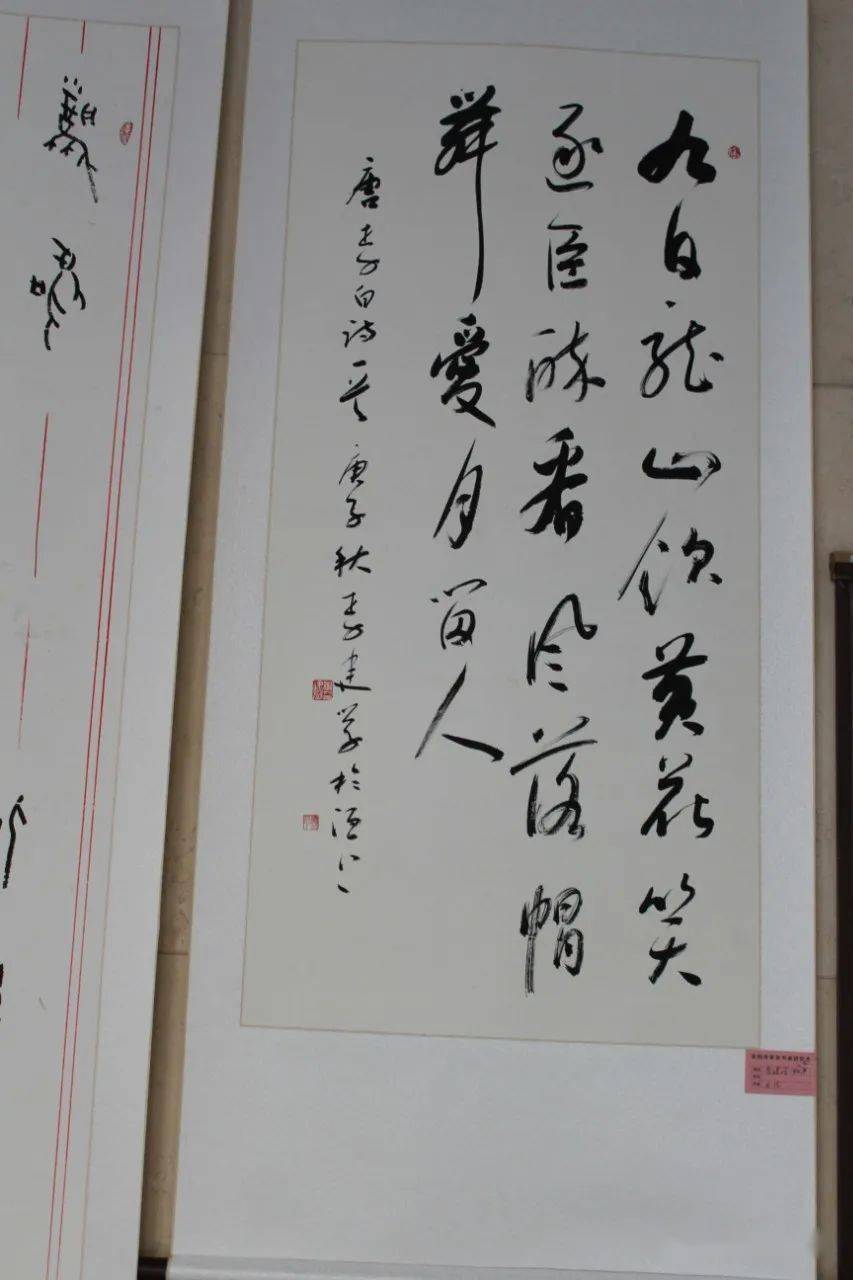 九日龍山飲黄花笑
逐臣醉看風落帽
舞愛月留人
唐李白詩一首庚子秋李建學於洹上